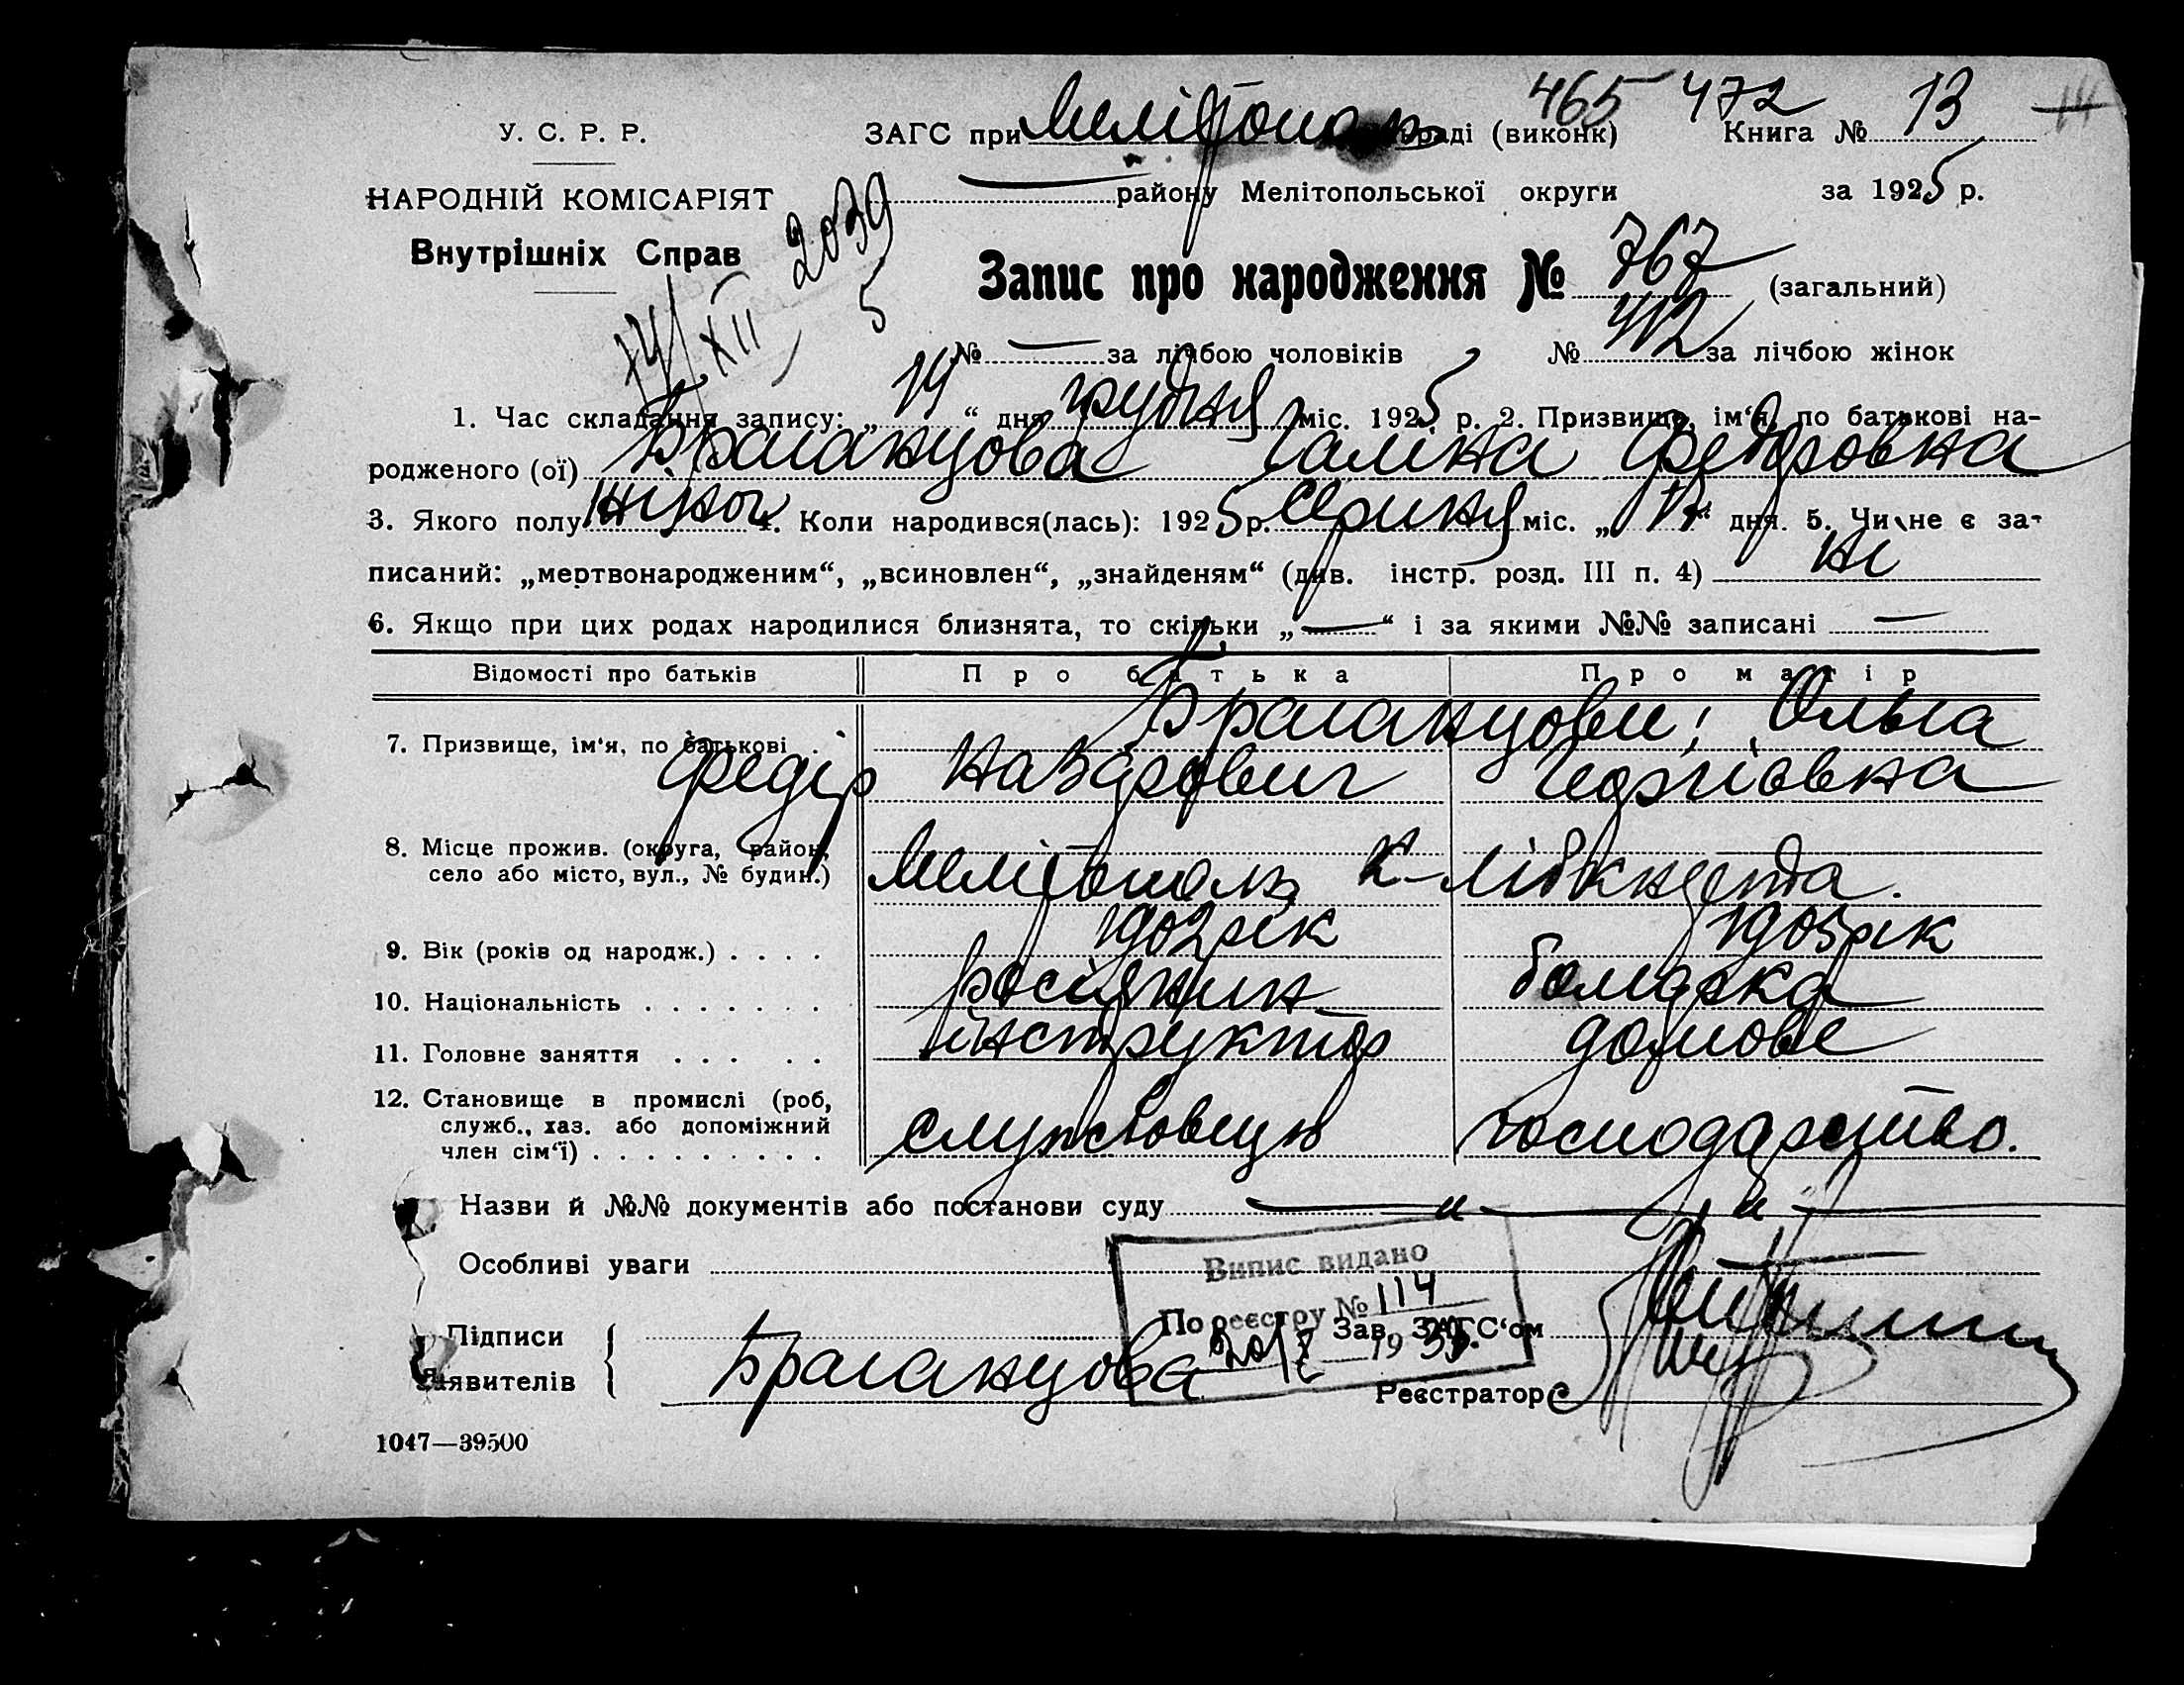 465 472
У. С. Р. Р. ЗАГС при Мелітополь раді (виконк) Книга № 13 14
НАРОДНІЙ КОМІСАРІЯТ — району Мелітопольської округи за 1925 р.
Внутрішніх Справ
2039
5
14/XII
Запис про народження № 767 (загальний)
№ — за лічбою чоловіків № 412 за лічбою жінок
1. Час складання запису: „14“ дня грудня міс. 1925 р. 2. Призвище, ім‘я, по батькові на-
родженого (ої) Браганцова Галіна Федоровна
3. Якого полу жіноч 4. Коли народився(лась): 1925 р. Серпня міс. „17“ дня. 5. Чи не є за-
писаний: „мертвонародженим“, „всиновлен“, „знайденям“ (див. інстр. розд. III п. 4) ні
6. Якщо при цих родах народилися близнята, то скільки „—“ і за якими №№ записані —
Відомості про батьків Про батька Про матір
Браганцови; Ольга
7. Призвище, ім‘я, по батькові .
Федір Назарович Георгіевна
8. Місце прожив. (округа, район,
село або місто, вул., № будин.) Мелітополь К-Лібкнехта.
9. Вік (років од народж.) . . . . 1902 рік 1905 рік
10. Національність . . . . . . . росіянин болгарка
11. Головне заняття . . . . . інструктор домове
12. Становище в промислі (роб,
служб., хаз. або допоміжний
член сім‘ї) . . . . . . . . . службовець господарство.
Назви й №№ документів або постанови суду — „ — „ —
Особливі уваги
Випис видано
По реєстру № 114
Підписи Зав. ЗАГС‘ом
Заявителів Браганцова
20/X 19
Реєстратор
1047—39500